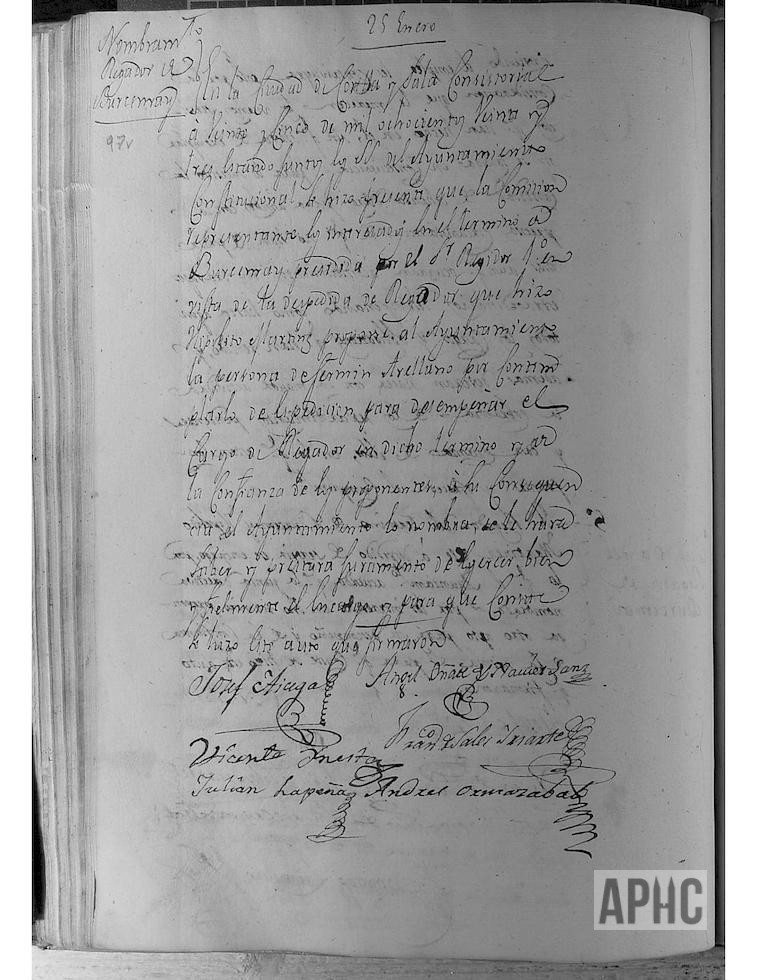 25 Enero
Nombram.to
Regador de
Burcemay
97v
En la Ciudad de Corella y Sala Consistorial
a veinte y cinco de mil ochocientos veinte y
tres estando juntos los SS. del Ayuntamiento
Constitucional se hizo presente que la Comision
representante los interesados en el termino de
Burcemay presidida por el Sr. Regidor 1.o en
vista de la despedida de Regador que hizo
Hipolito Martinz propone al Ayuntamiento
la persona de fermin Arellano por contem
plarlo de disposicion para desempeñar el
Cargo de Regador en dicho termino y de
la Confianza de los proponentes, à su Consequen
cia el Ayuntamiento lo nombra, se le hará
saber y prestara juramento de egercer bien
y fielmente el encargo y para que Conste
se hizo este auto que firmaron
Josef Aiaga
Angel Oñate y Navier Sanz
Vicente Ynesta
Fran.co de Sales Yriarte
Julian Lapeña
Andres Ormazabal
APHC